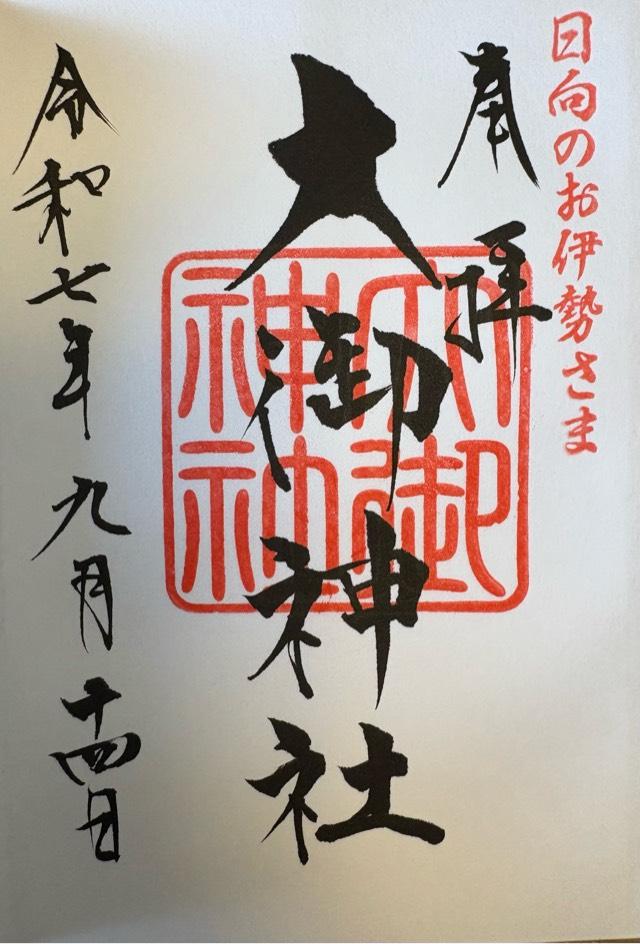 日向のお伊勢さま
奉拝
大御神社
大御
神社
令和七年九月十四日